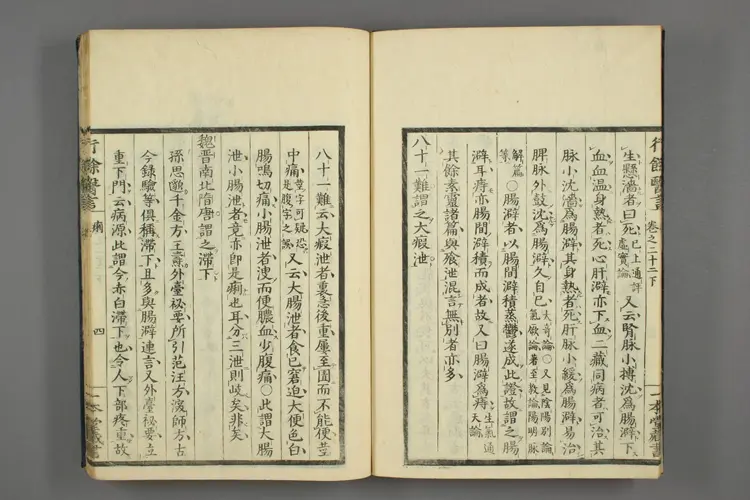 行餘醫言 卷之二十二下
生懸濇者曰死已上通評虛實論又云腎脈小搏沈爲腸澼下
血血温身熱者死心肝澼亦下血二藏同病者可治其
脈小沈濇爲腸澼其身熱者死肝脈小緩爲腸澼易治
脾脈外鼓沈爲腸澼久自已大奇論○又見陰陽別論氣厥論著至教論陽明脈
解篇等○腸澼者以腸間澼積蒸鬱遂成此證故謂之腸
澼耳痔亦腸間澼積而成者故又曰腸澼爲痔生氣通天論
其餘素靈諸篇與飱泄混言無別者亦多
八十一難謂之大瘕泄
一本堂藏書
八十一難云大瘕泄者裏急後重屢至圊而不能便莖
中痛莖字可疑恐是腹字之誤又云大腸泄者食已窘迫大便色白
腸鳴切痛小腸泄者溲而便膿血少腹痛○此謂大腸
泄小腸泄者竟亦卽是痢也耳分三泄則岐矣非矣
魏晉南北隋唐謂之滯下
孫思邈千金方王燾外臺秘要所引范汪方深師方古
今錄驗等俱稱滯下且多與腸澼連言又外臺秘要立
重下門云病源此謂今赤白滯下也令人下部疼重故
行餘醫言 痢 四
一本堂藏書